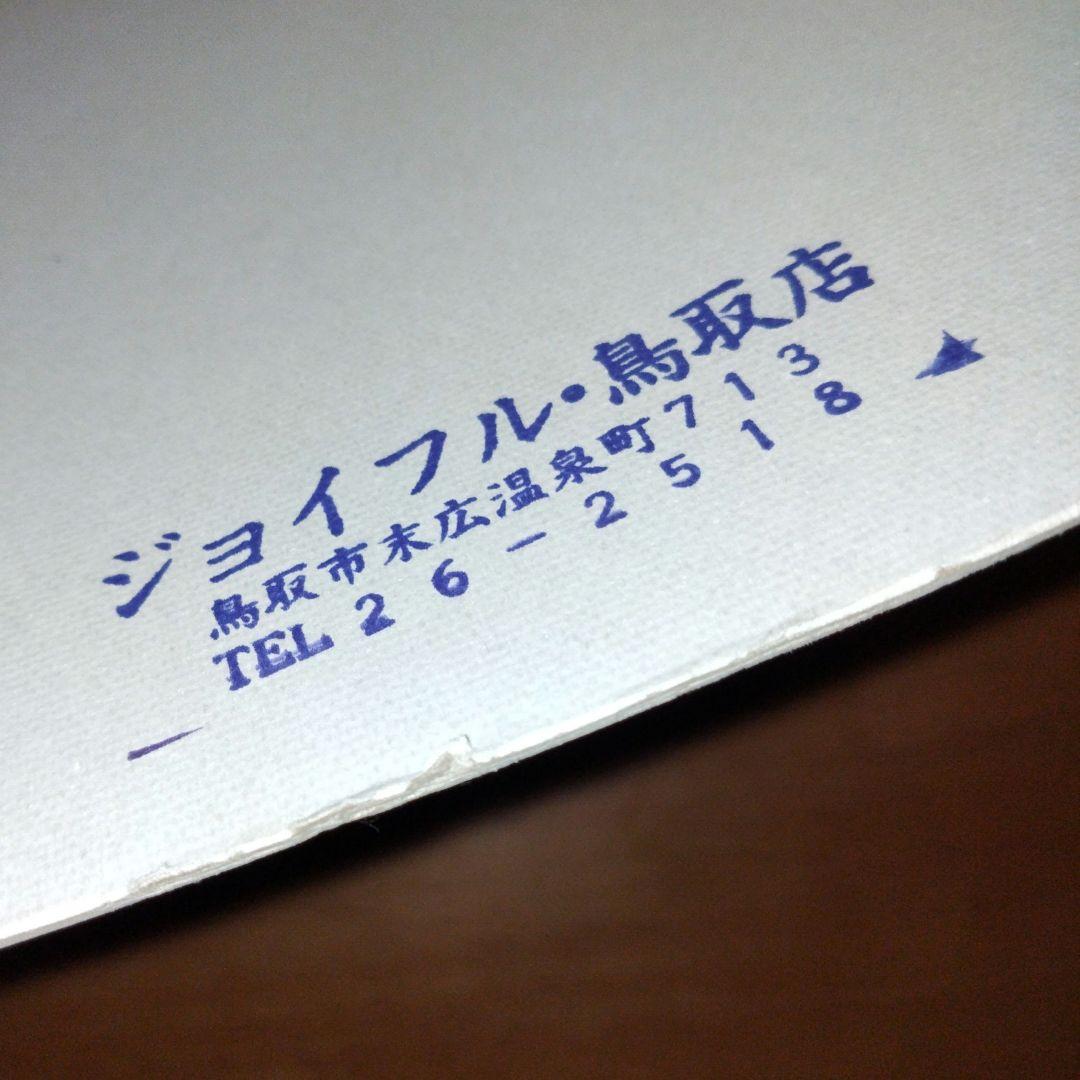 ジョイフル・鳥取店
鳥取市末広温泉町713
TEL 26-2518